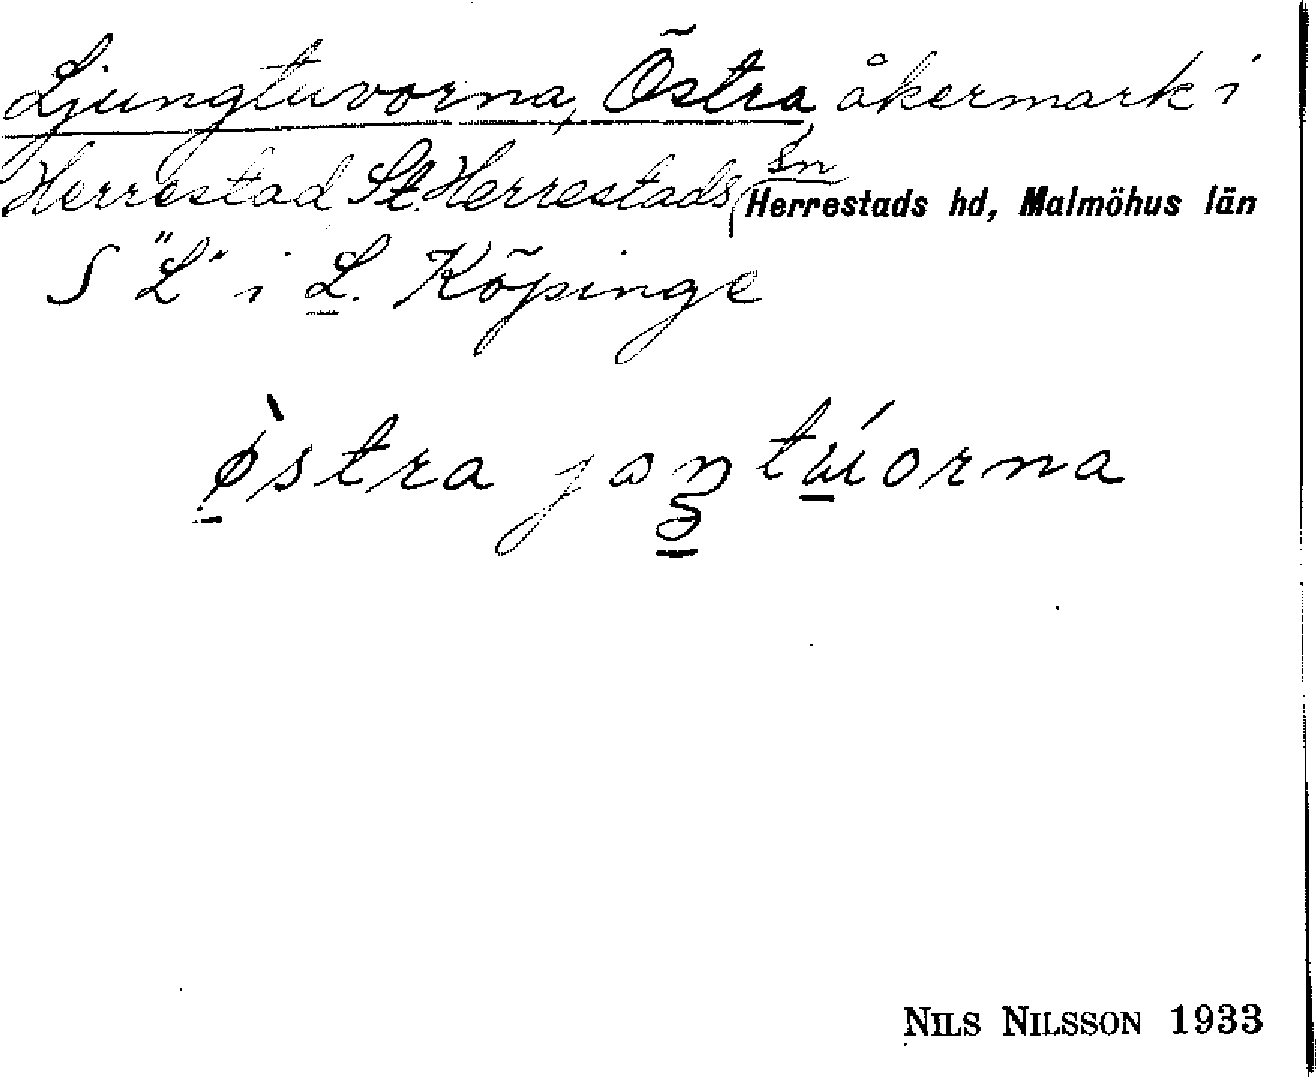 Ljungtuvorna, Östra, åkermark i
Herrestad St. Herrestads sn Herrestads hd, Malmöhus län
S "L" i L. Köpinge
østra jon tuorna
NILS NILSSON 1933